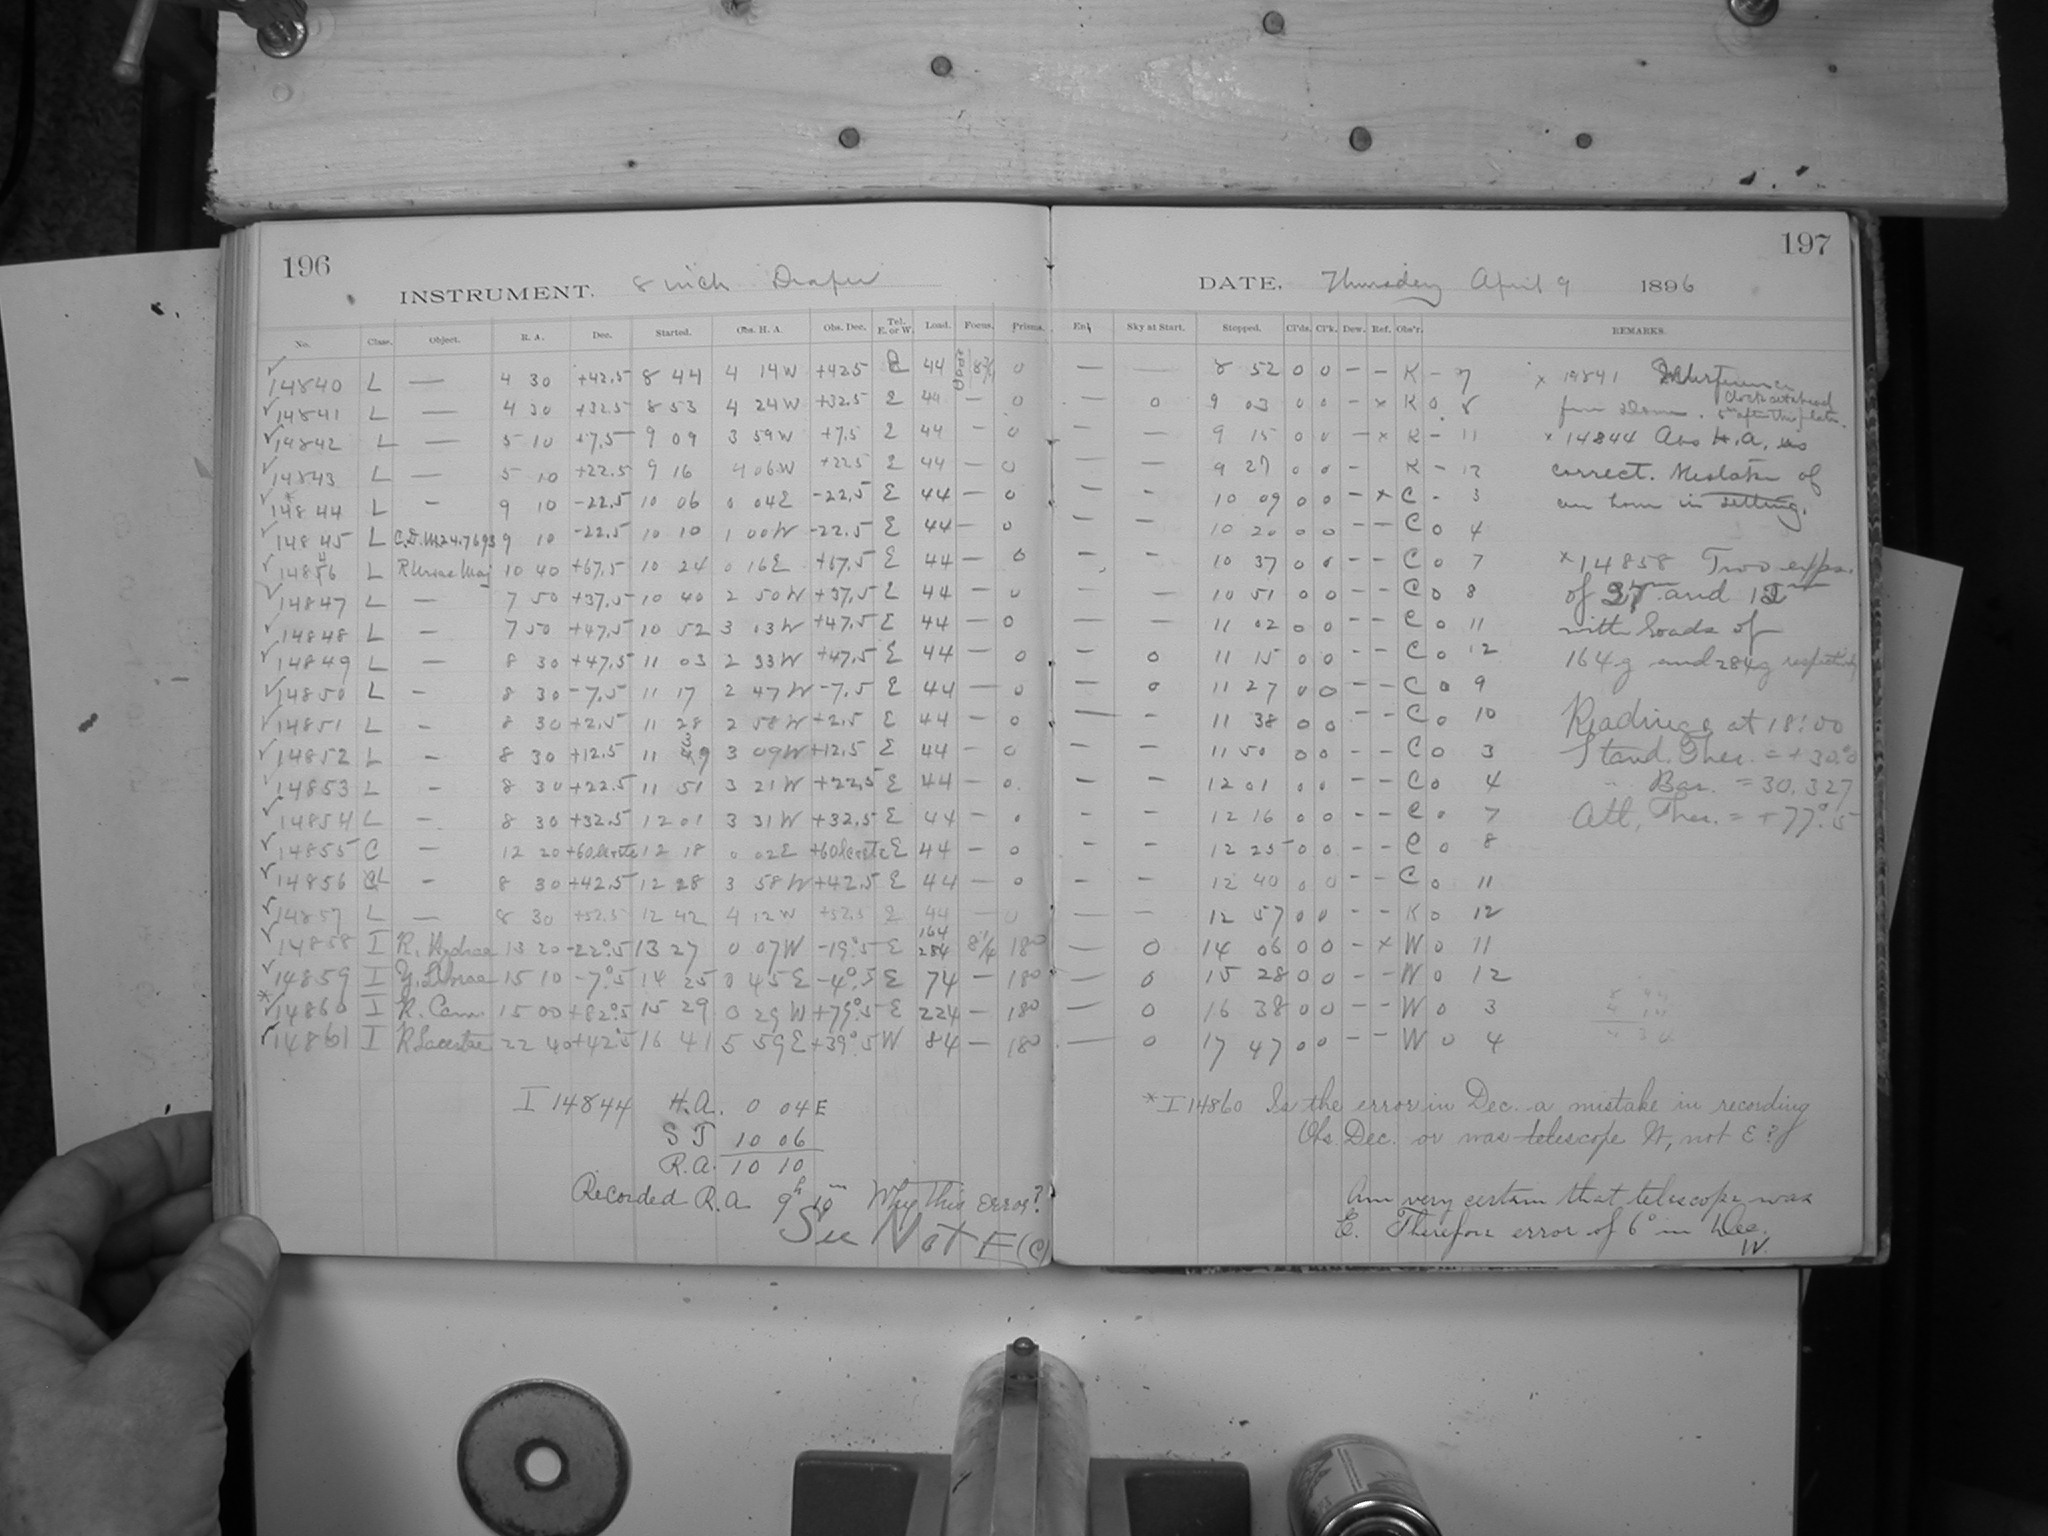 196
INSTRUMENT. 8 inch Draper
No. Class. Object. R. A. Dec. Started. Obs. H. A. Obs. Dec. Tel. E. or W. Load. Focus. Prisms.
14840 L — 4 30 +42.5 8 44 4 14W +42.5 E 44 8 3/4 0
14841 L — 4 30 +32.5 8 53 4 24W +32.5 E 44 — 0
14842 L — 5 10 +7.5 9 09 3 59W +7.5 E 44 — 0
14843 L — 5 10 +22.5 9 16 4 06W +22.5 E 44 — 0
14844 L — 9 10 -22.5 10 06 0 04E -22.5 E 44 — 0
14845 L C.D.M.24.7693 9 10 -22.5 10 10 1 00W -22.5 E 44 — 0
14846 L R Ursae Maj 10 40 +67.5 10 24 0 16E +67.5 E 44 — 0
14847 L — 7 50 +37.5 10 40 2 50W +37.5 E 44 — 0
14848 L — 7 50 +47.5 10 52 3 03W +47.5 E 44 — 0
14849 L — 8 30 +47.5 11 03 2 33W +47.5 E 44 — 0
14850 L — 8 30 -7.5 11 17 2 47W -7.5 E 44 — 0
14851 L — 8 30 +2.5 11 28 2 58W +2.5 E 44 — 0
14852 L — 8 30 +12.5 11 39 3 09W +12.5 E 44 — 0
14853 L — 8 30 +22.5 11 51 3 21W +22.5 E 44 — 0
14854 L — 8 30 +32.5 12 01 3 31W +32.5 E 44 — 0
14855 C — 12 20 +60 12 18 0 02E +60 E 44 — 0
14856 L — 8 30 +42.5 12 28 3 58W +42.5 E 44 — 0
14857 L — 8 30 +52.5 12 42 4 12W +52.5 E 44 — 0
14858 I R. Hydrae 13 20 -22°.5 13 27 0 07W -19°.5 E 164 284 8 1/4 180
14859 I Y. Librae 15 10 -7°.5 14 25 0 45E -4°.5 E 74 — 180
*14860 I R. Cam. 15 00 +82°.5 15 29 0 29W +79°.5 E 224 — 180
14861 I R Lacertae 22 40 +42.5 16 41 5 59E +39°.5 W 84 — 180
I 14844 H.A. 0 04 E
S T 10 06
R.A. 10 10
Recorded R.A. 9h 10m Why this error?
See Note (C)
197
DATE. Thursday April 9 1896
Sky at Start. Stopped. Cl'ds. Cl'k. Dew. Ref. Obs'r. REMARKS.
— — 8 52 0 0 — — K — 7
— 0 9 03 0 0 — x K 0 8
— — 9 15 0 0 — x K — 11
— — 9 27 0 0 — K — 12
— — 10 09 0 0 — x C — 3
— — 10 20 0 0 — — C 0 4
— — 10 37 0 0 — — C 0 7
— — 10 51 0 0 — — C 0 8
— — 11 02 0 0 — — C 0 11
— 0 11 15 0 0 — — C 0 12
— 0 11 27 0 0 — — C 0 9
— — 11 38 0 0 — — C 0 10
— — 11 50 0 0 — — C 0 3
— — 12 01 0 0 — — C 0 4
— — 12 16 0 0 — — C 0 7
— — 12 25 0 0 — — C 0 8
— — 12 40 0 0 — — C 0 11
— — 12 57 0 0 — — K 0 12
— 0 14 06 0 0 — x W 0 11
— 0 15 28 0 0 — — W 0 12
— 0 16 38 0 0 — — W 0 3
— 0 17 47 0 0 — — W 0 4
x 14841 Interference
from Dome.
x 14844 Obs H.A. is
correct. Mistake of
an hour in setting.
x 14858 Two exps.
of 27m and 12m
with loads of
164g and 284g respectively
Readings at 18:00
Stand. Ther. = +30.°0
" Bar. = 30.327
Att. Ther. = +77°.5
*I 14860 Is the error in Dec. a mistake in recording
Obs. Dec. or was telescope W, not E?
Am very certain that telescope was
E. Therefore error of 6° in Dec.
W.